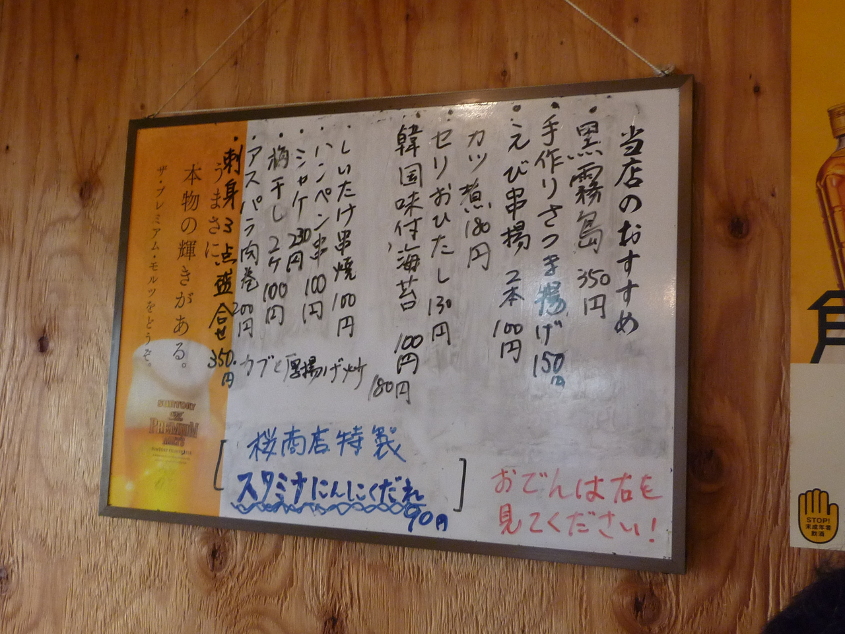 当店のおすすめ
・黒霧島 350円
・手作りさつま揚げ 150円
・えび串揚 2本 100円
カツ煮 180円
・セリおひたし 130円
韓国味付海苔 100円
・しいたけ串焼 100円
・ハンペン串 100円
・シャケ 230円
・梅干し 2ケ 100円
・アスパラ肉巻 200円
・刺身3点盛合せ 350円
カブと厚揚げ炒 180円
うまさに
本物の輝きがある。
ザ・プレミアム・モルツをどうぞ。
SUNTORY
THE
PREMIUM
MALT'S
[桜商店特製
スタミナにんにくだれ]
90円
おでんは右を
見てください!
角
STOP!
未成年者
飲酒